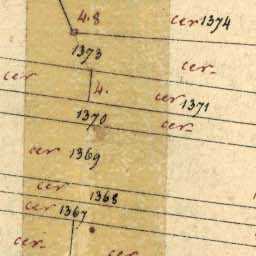 4.8
cer 1374
1373
cer-
cer
4.
cer 1371
1370
cer-
cer 1369
cer 1368
cer 1367
cer-
cer